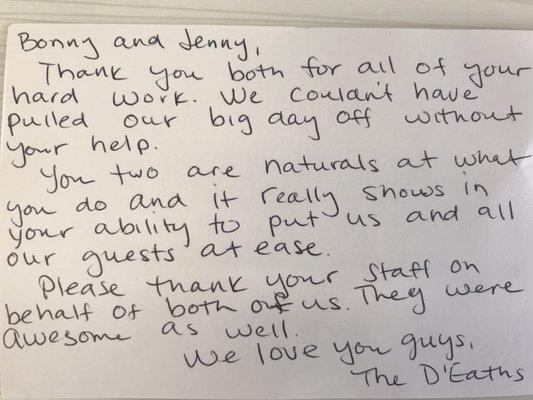 Bonny and Jenny,
Thank you both for all of your
hard work. We couldn't have
pulled our big day off without
your help.
You two are naturals at what
you do and it really shows in
your ability to put us and all
our guests at ease.
Please thank your staff on
behalf of both of us. They were
awesome as well.
We love you guys,
The D'Eaths